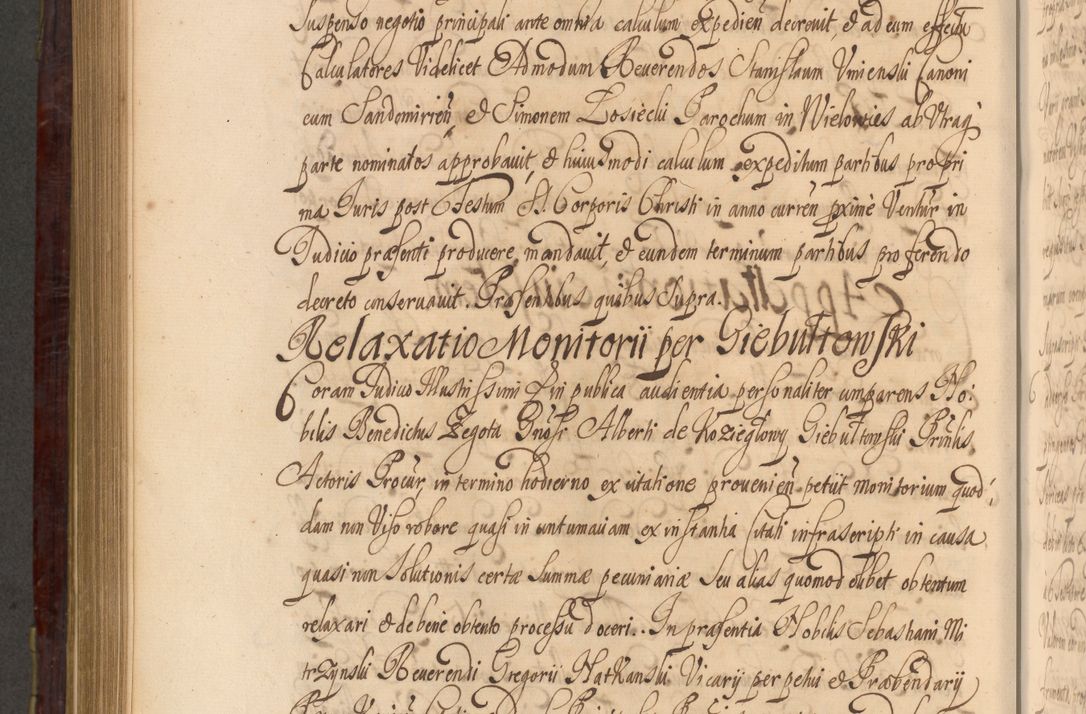 Suspenso negotio principali ante omnia calculum expedien decrevit, et ad eum effectu
Calculatores Videlicet Admodum Reverendos Stanislaum Uniewski Canoni
cum Sandomirien et Simonem Łosiecki Parochum in Wielowies ab Utraq
parte nominatos approbavit, et huiusmodi calculum expeditum partibus pro pri
ma Juris post Festum SS. Corporis Christi in anno curren proxime Ventur in
Judicio præsenti producere mandavit, et eundem terminum partibus pro ferendo
decreto conservavit. Præsentibus quibus Supra.
Relaxatio Monitorii per Giebułtowski
Coram Judicio Illustrissimi in publica audientia personaliter comparens No
bilis Benedictus Zegota Gnosi Alberti de Koziegłowy Giebułtowski Prinlis
Actoris Procur, in termino hodierno ex citatione provenien petiit monitorium quod
dam non Viso robore quasi in contumaciam ex instantia Citati infrascripti in causa
quasi non Solutionis certæ Summæ pecuniariæ Seu alias quomodolibet obtentum
relaxari et de bene obtento processu doceri. In præsentia Nobilis Sebastiani Mi
trzynski Reverendi Gregorii Natkanski Vicarii perpetui et Præbendarii